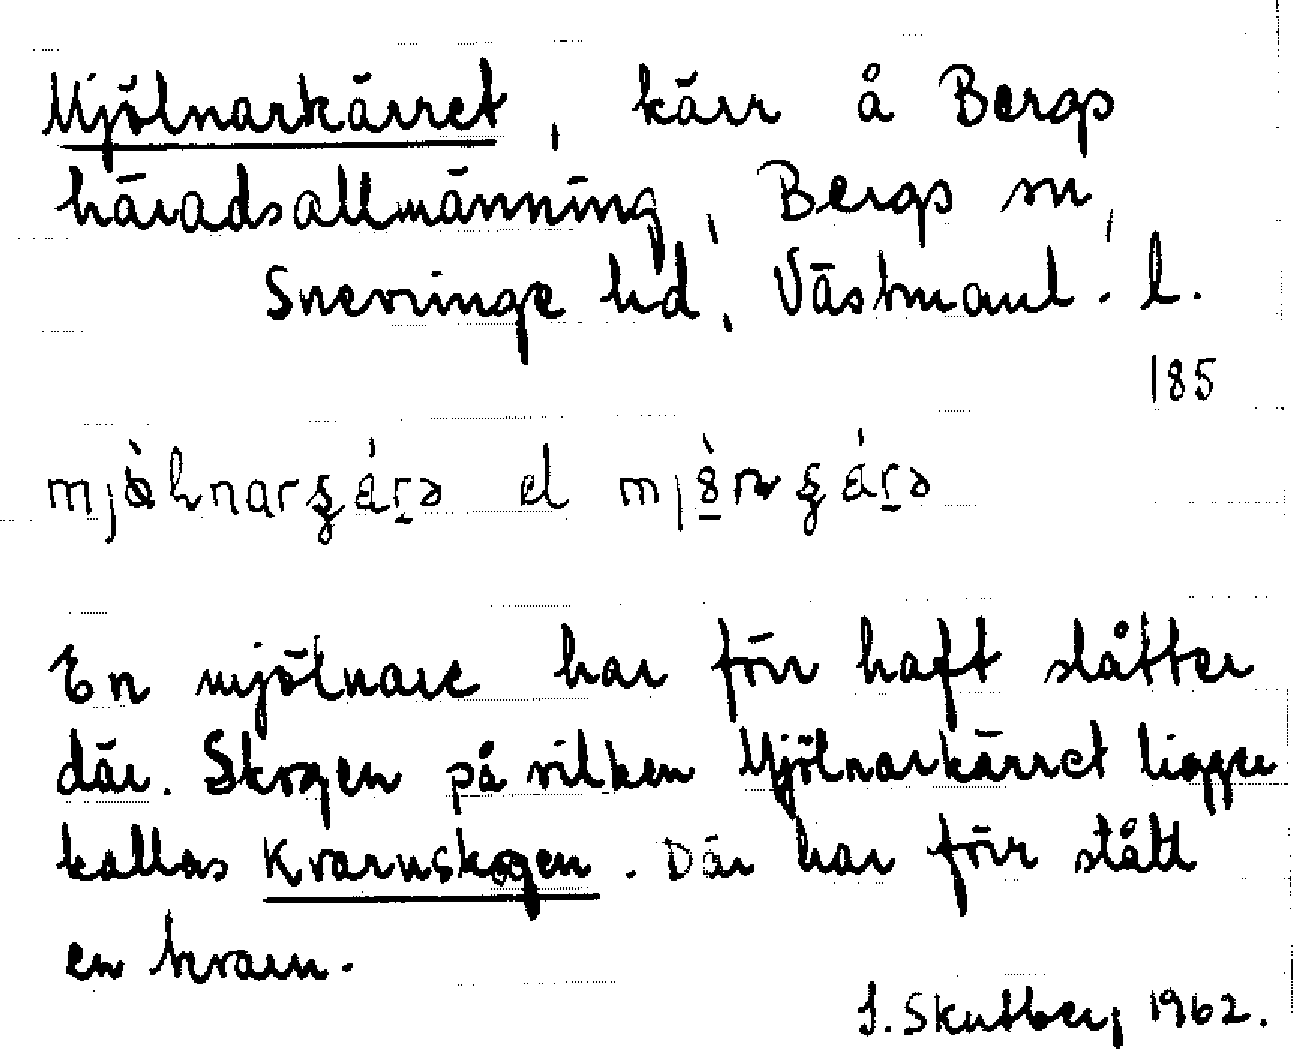 Mjölnarkärret, kärr å Bergs
häradsallmänning, Bergs sn,
Snevringe hd, Västmanl. l.
185
el
En mjölnare har förr haft slåtter
där. Skogen på vilken Mjölnarkärret ligger
kallas Kvarnskogen. Där har förr stått
en kvarn.
I. Skutberg 1962.